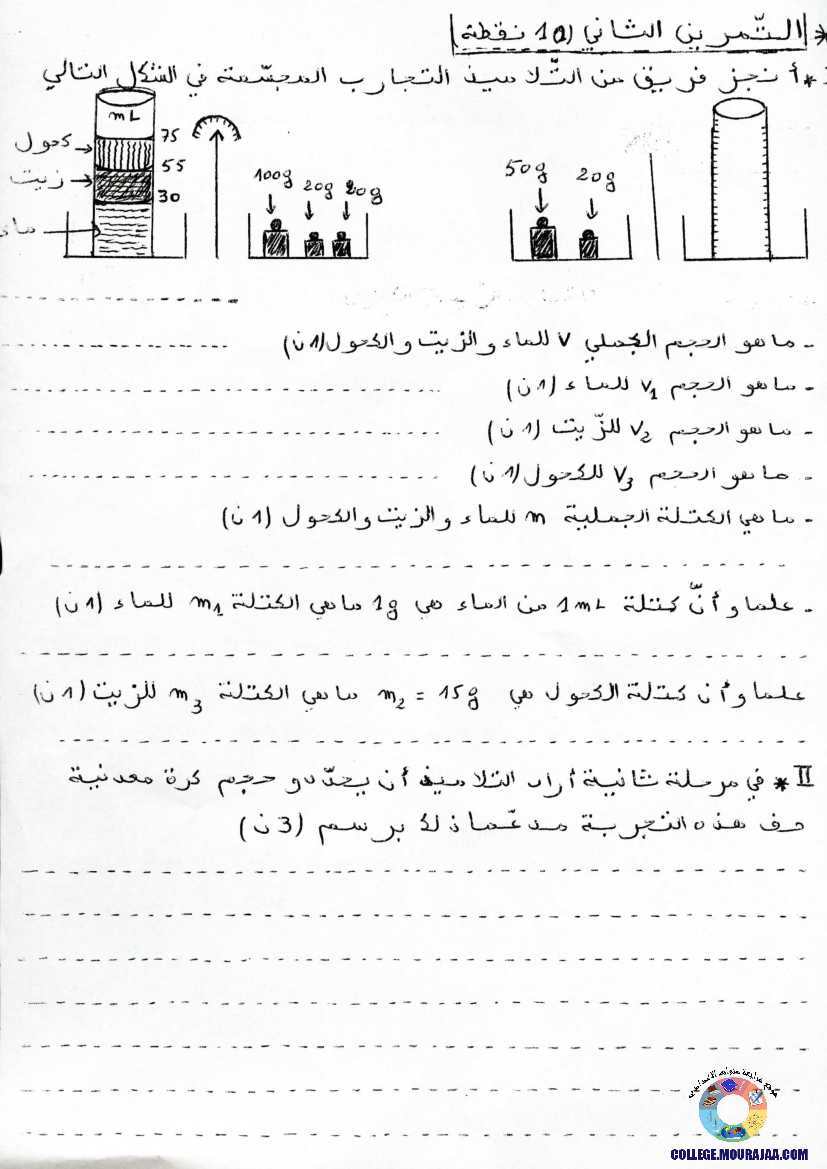 * التّمرين الثاني (10 نقطة)
* أنجز فريق من التّلاميذ التجارب المجسّمة في الشكل التالي
mL
75
كحول
55
زيت
30
ماء
100g 20g 20g
50g 20g
- ما هو الحجم الجملي V للماء والزيت والكحول (1ن)
- ما هو الحجم V1 للماء (1ن)
- ما هو الحجم V2 للزّيت (1ن)
- ما هو الحجم V3 للكحول (1ن)
- ما هي الكتلة الجملية m للماء والزيت والكحول (1ن)
- علما وأنّ كتلة 1mL من الماء هي 1g ما هي الكتلة m1 للماء (1ن)
علما وأن كتلة الكحول هي m2 = 15g ما هي الكتلة m3 للزيت (1ن)
II * في مرحلة ثانية أراد التلاميذ أن يحدّدو حجم كرة معدنية
صف هذه التجربة مدعّما ذلك برسم (3ن)
COLLEGE.MOURAJAA.COM